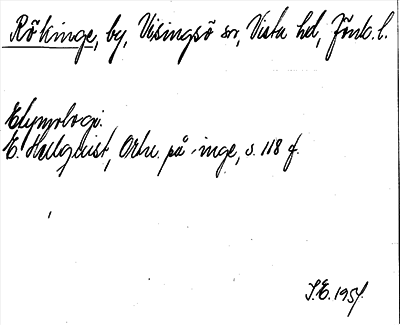 Rökinge, by, Visingsö sn, Vista hd, Jönk. l.
Etymologi.
E. Hellquist, Ortn. på -inge, s. 118 f.
S.E. 1954.